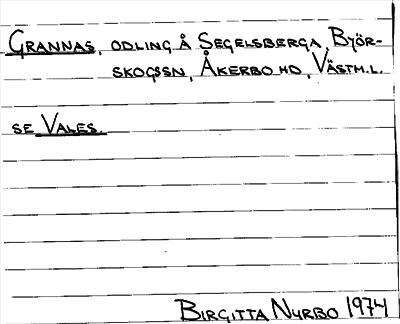 GRANNAS, ODLING Å SEGELSBERGA, BJÖR-
SKOGSSN, ÅKERBO HD, VÄSTM.L.
SE VALES.
BIRGITTA NYRBO 1974